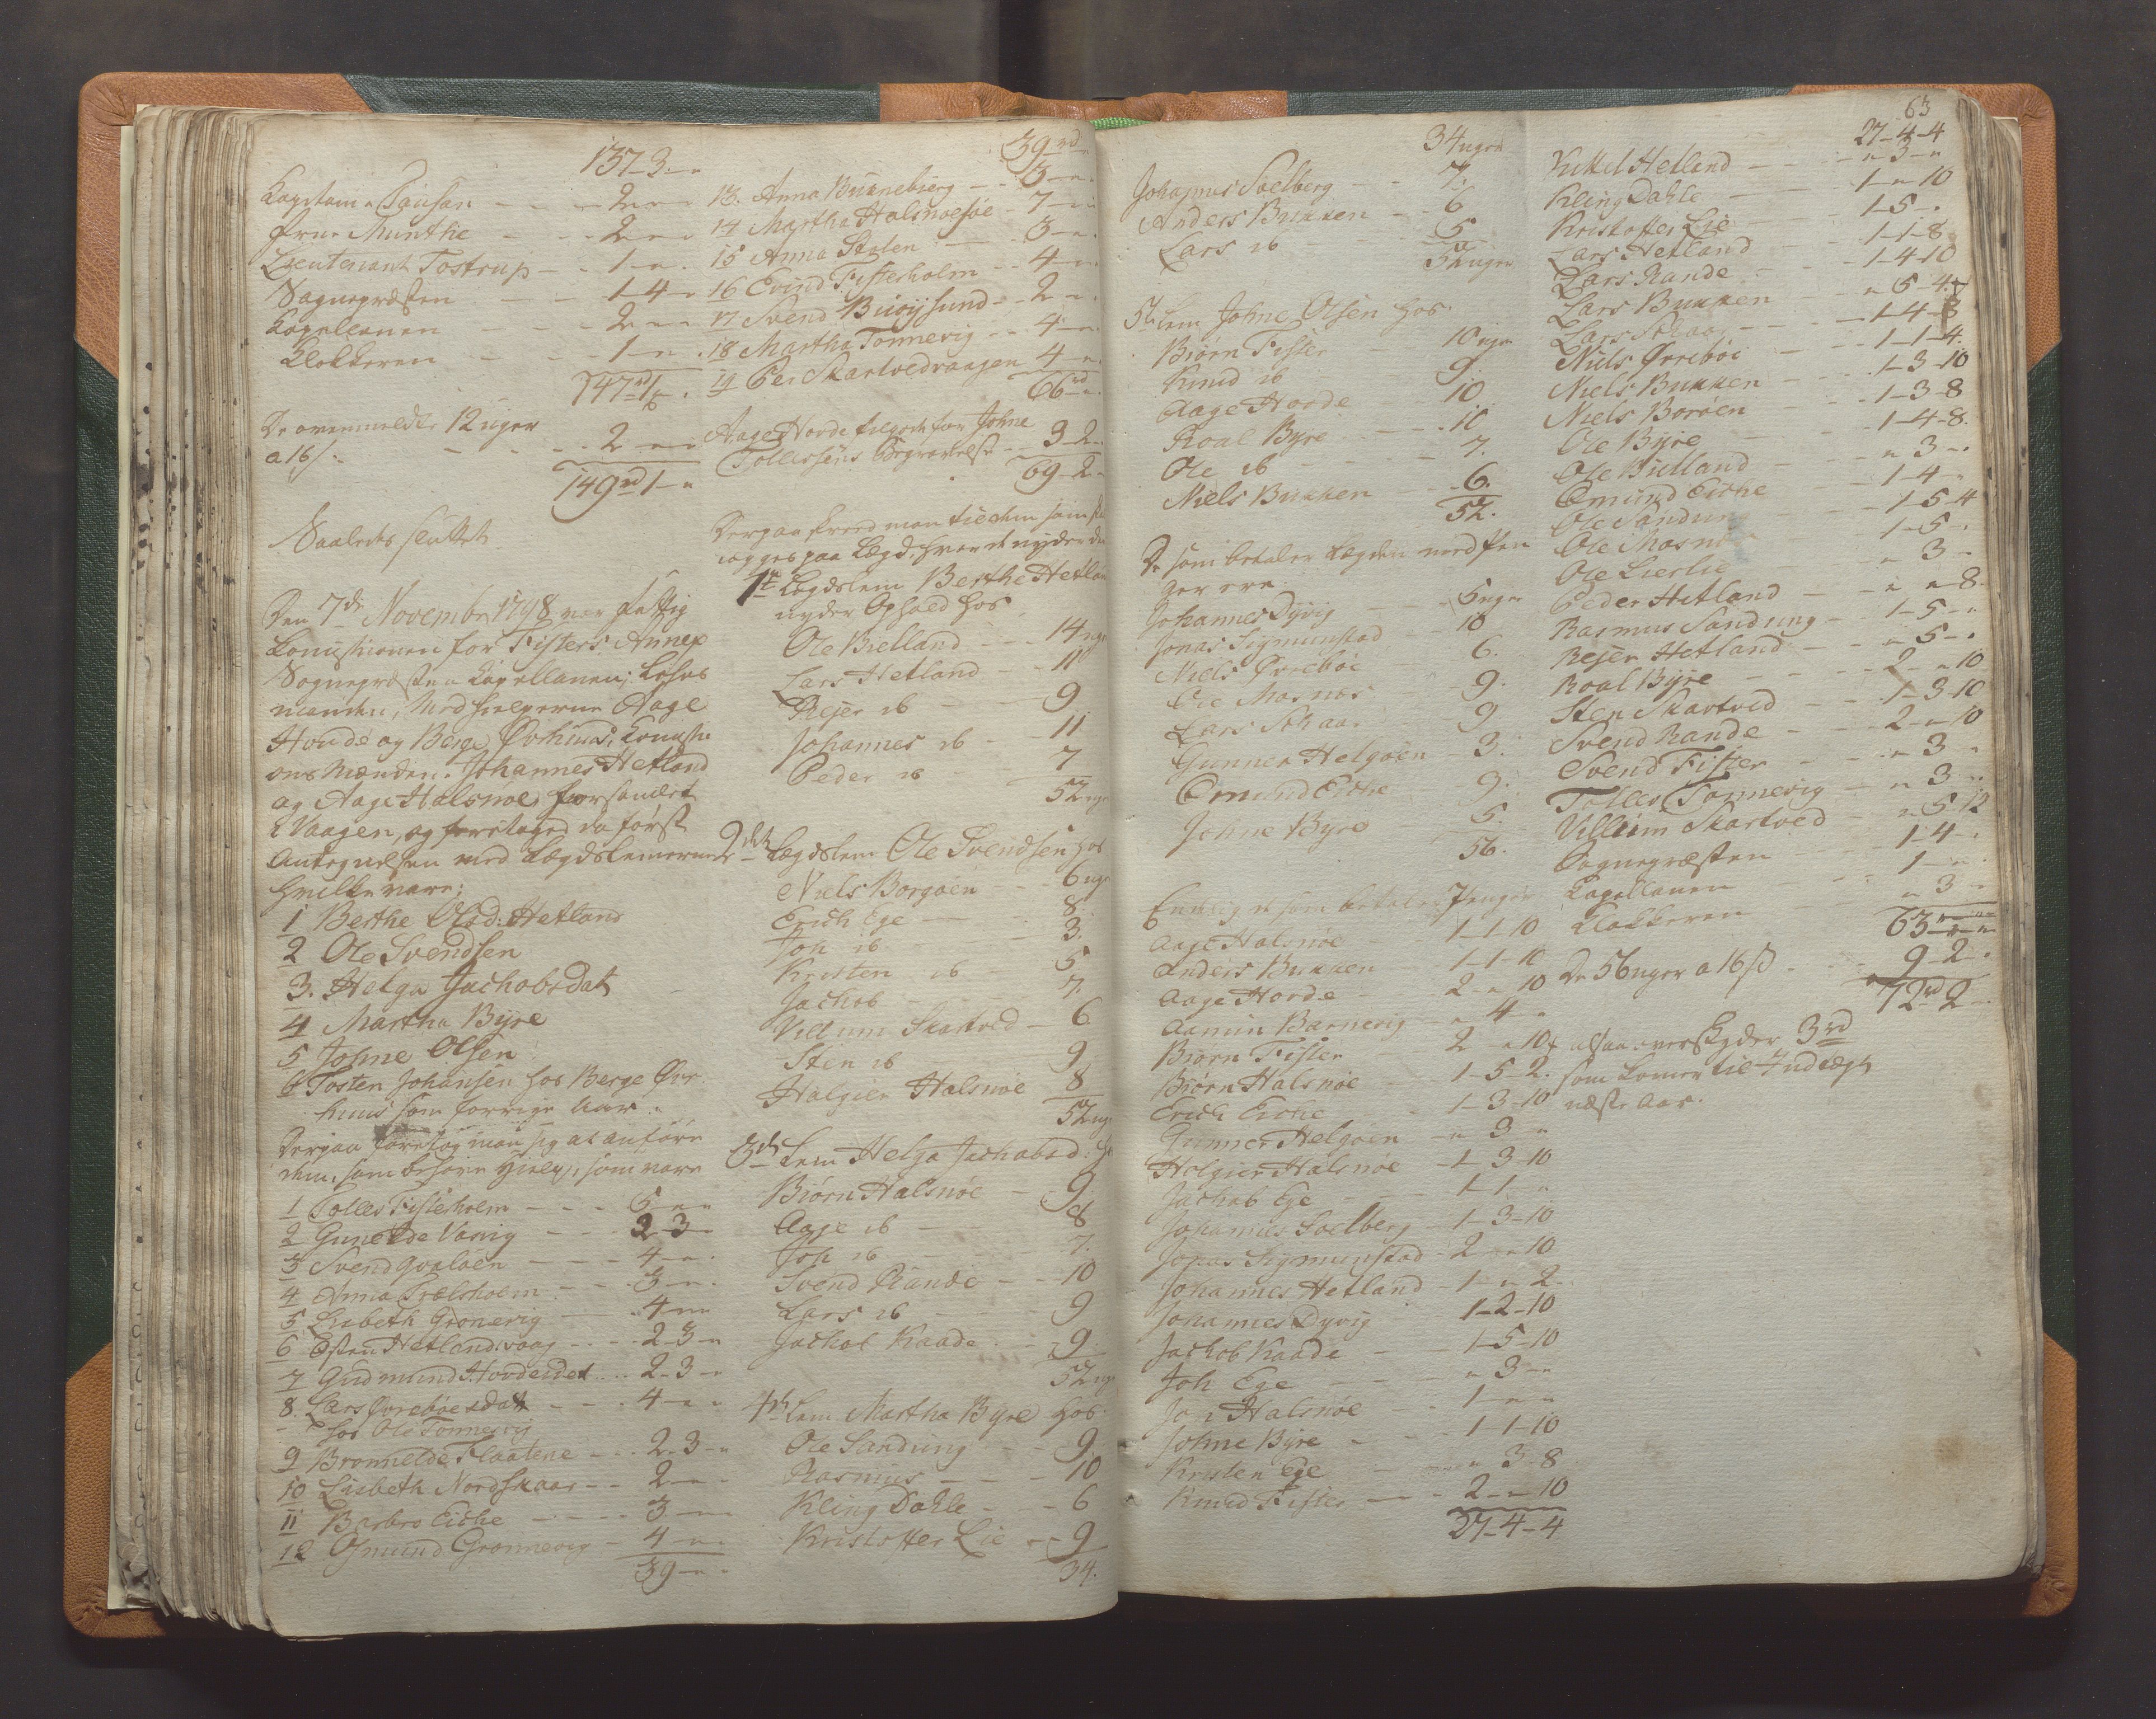 137-3-"
Kapitain Pausan - - - 2-"-"
Frue Munthe - - 2-"-"
Lieutenant Tostrup - - 1-"-"
Sognepræsten - - 1-4-"
Kapellanen - - 2-"-"
Klokkeren - - 1-"-"
147rd1-"
De ovenmeldte 12 uger
a 16 s: - - - 2-"-"
149rd1-"
Saaledes sluttet
Den 7de November 1798 var Fattig
Komissionen for Fisters Annex
Sognepræsten, Kapellanen; Lehns
manden, Medhielperne Aage
Hovde og Berge Øvrhuus, Komissi
ons Mændene Johannes Hetland
og Aage Halsnøe, forsamlet
i Vaagen, og foretaged da først
Antegnelsen med Lægdslemmerne
hvilke vare:
1 Berthe Olsd: Hetland
2 Ole Svendsen
3. Helga Jachobsdat
4 Martha Byre
5 Johne Olsen
6 Tosten Johansen hos Berge Øvr
huus som forrige Aar.
Derpaa foretog man sig at anføre
dem, som behøve Hielp, som vare
1 Tolles Fisterholm - - - 5-"-"
2 Gunelde Vasvig - - 2-3-"
3 Svend Qvaløen - - - 4-"-"
4 Anna Trælsholm - - - 3-"-"
5 Lisbeth Grønevig - - - 4-"-"
6 Østen Hetlandsvaag - - 2-3-"
7 Gudmund Hovdeidet - - 2-3-"
8. Lars Øvrebøes dat - - - 4-"-"
hos Ole Tonnevig
9 Bronnelde Flaatene - - - 2-3-"
10 Lisbeth Nordskaar - - 2-"-"
11 Barbro Eiche - - - - 3-"-"
12 Osmund Gronnevig - 4-"-"
39-"-"
39rd-"
13. Anna Bukkebierg - - 3-"-"
14 Martha Halsnøesøe - 7-"-"
15 Anna Stølen - - 3-"-"
16 Evind Fisterholm - - 4-"-"
17 Svend Buøysund - - 2-"-"
18 Martha Tonnevig - - 4-"-"
19 Per Skartvedvaagen 4-"-"
66rd-"
Aage Hovde tilgode for Johne
Tollessens Begravelse - - 3-2-"
69-2-"
Derpaa skreed man til dem som skal
lægges paa Lægd, hvoraf nyder da
1te Lægdslem Berthe Hetland
nyder Ophold hos
Ole Bielland - - 14 uger
Lars Hetland - - 11
Rejer ib - - 9
Johannes ib - - 11
Peder ib - - 7
52 uger
2det Lægdslem Ole Svendsen hos
Niels Borgøen - - 6 uger
Erich Ege - - 8.
Joh ib - - 3.
Kristen ib - - 5
Jachob - - - 7.
Villum Skartved - 6
Sten ib - - 9
Holgier Halsnøe - - 8
52 uger
3die Lem Helga Jachobsd: hos
Biørn Halsnøe - 9
Aage ib - - 8
Joh ib - - - 7.
Svend Rande - - 10
Lars ib - - - 9
Jachob Kaade - - 9.
52 uger
4de Lem Martha Byre hos
Ole Sandung - - 9
Rasmus - - - 10
Kling Dahle - - 6
Kristoffer Lie - - 9
34.
34 uger
Johannes Soelberg - - 7.
Anders Bukken - - 6
Lars ib - - 5
52 uger
5te Lem Johne Olsen hos
Biørn Fister - - 10 uger
Knud ib - - 9.
Aage Hovde - - 10
Roal Byre - - - 10
Ole ib - - 7.
Niels Bukken - - 6.
52.
De som betaler Lægden med Pen
ger ere
Johannes Dyvig - - 5 uger
Jonas Sigmunstad - 10
Niels Øvrebøe - - 6.
Ole Mosnes - - 9.
Lars Skaar - - 9
Gunner Helgøen - 3.
Omund Eiche - - 9.
Johne Byre - - 5.
56.
Endelig de som betaler Penger
Aage Halsnøe - 1-1-10
Anders Bukken - 1-1-10
Aage Hovde - 2-"-10
Aamun Barnevig - "-4-"
Biørn Fister - 2-"-10
Biørn Halsnøe - 1-5-2.
Erich Eiche - 1-3-10
Gunner Helgøen - "-3-"
Holgier Halsnøe - 1-3-10
Jachob Ege - 1-1-"
Johannes Soelberg - 1-3-10
Jonas Sigmunstad - 2-"-10
Johannes Hetland - 1-"-2-
Johannes Dyvig 1-2-10
Jachob Kaade - - 1-5-10
Joh Ege - - "-3-"
Joh Halsnøe - - 1-"-"
Johne Byre - - - 1-1-10
Kristen Ege - "-3-8
Knud Fister - - - 2-"-10
27-4-4
63
27-4-4
Kittel Hetland - - - "-3-"
Kling Dahle - - 1-"-10
Kristoffer Lie - - 1-5-"
Lars Hetland - - 1-1-8
Lars Rande - - 1-4-10
Lars Bukken - - "-5-4.
Lars Skaar - - 1-4-8
Niels Øvrebøe - - 1-1-4.
Niels Bukken - - 1-3-10
Niels Borøen - - 1-3-8
Ole Byre - - 1-4-8.
Ole Bielland - - "-3-"
Omund Eiche - - 1-4-"
Ole Sandung - - 1-5-4
Ole Mosnes - - 1-5-"
Ole Lierlie - - "-3-"
Peder Hetland - - "-"-8.
Rasmus Sandung - - 1-5-"
Rejer Hetland - - "-5-"
Roal Byre - - 2-"-10
Sten Skartved - - 1-3-10
Svend Rande - - 2-"-10
Svend Fister - - "-3-"
Tolles Tonnevig - - "-3-"
Villum Skartved - "-5-12
Sognepræsten - - 1-4-"
Kapellanen - - 1-"-"
Klokkeren - - "-3-"
63-"-"
De 56 uger a 16 s - - 9-2-"
72rd2-"
altsaa overskyder 3rd
som komer til Indtægt
næste Aar.